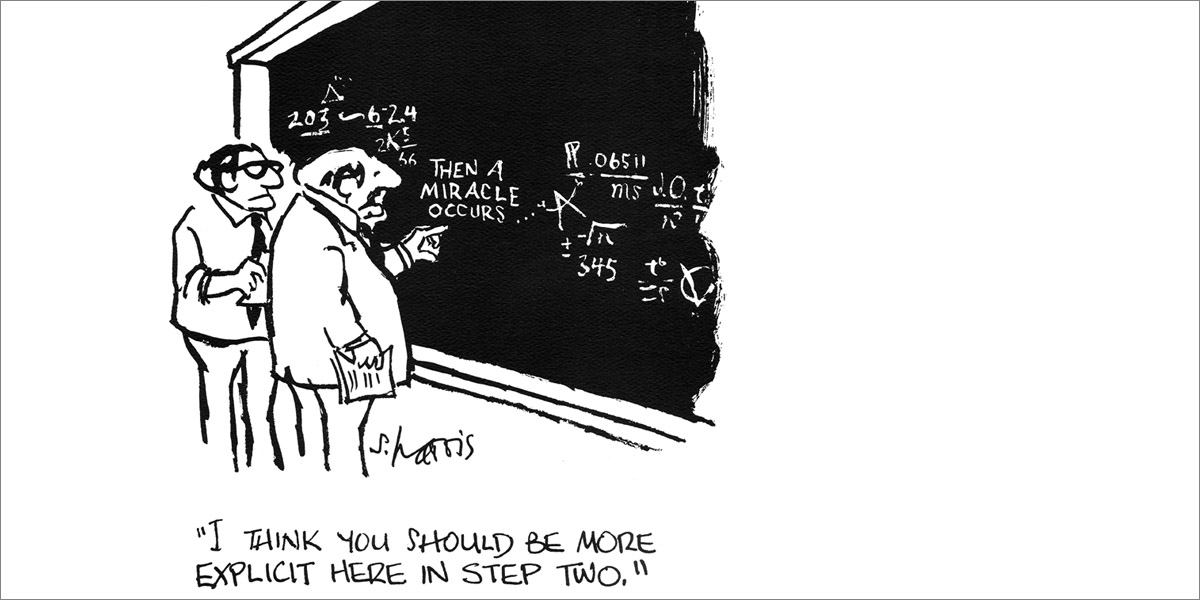 203 ~ 6-2.4
THEN A
MIRACLE
OCCURS...
.06511
ms
345
S. Harris
"I THINK YOU SHOULD BE MORE
EXPLICIT HERE IN STEP TWO."